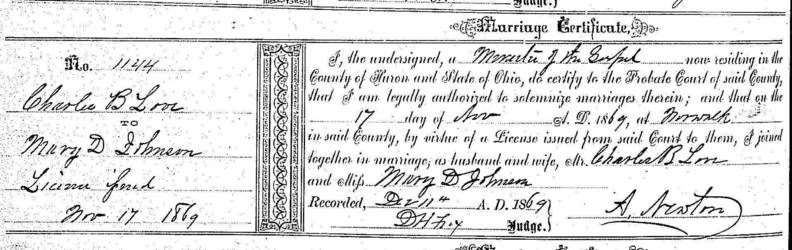 Judge.
Marriage Certificate.
No. 1144
Charles B Love
TO
Mary D Johnson
License issued
Nov 17 1869
I, the undersigned, a Minister of the Gospel now residing in the
County of Huron and State of Ohio, do certify to the Probate Court of said County,
that I am legally authorized to solemnize marriages therein; and that on the
17 day of Nov A. D. 1869, at Norwalk
in said County, by virtue of a License issued from said Court to them, I joined
together in marriage, as husband and wife, Mr. Charles B Love
and Miss Mary D Johnson
Recorded, Dec 11th A. D. 1869
Judge.
A. Newton